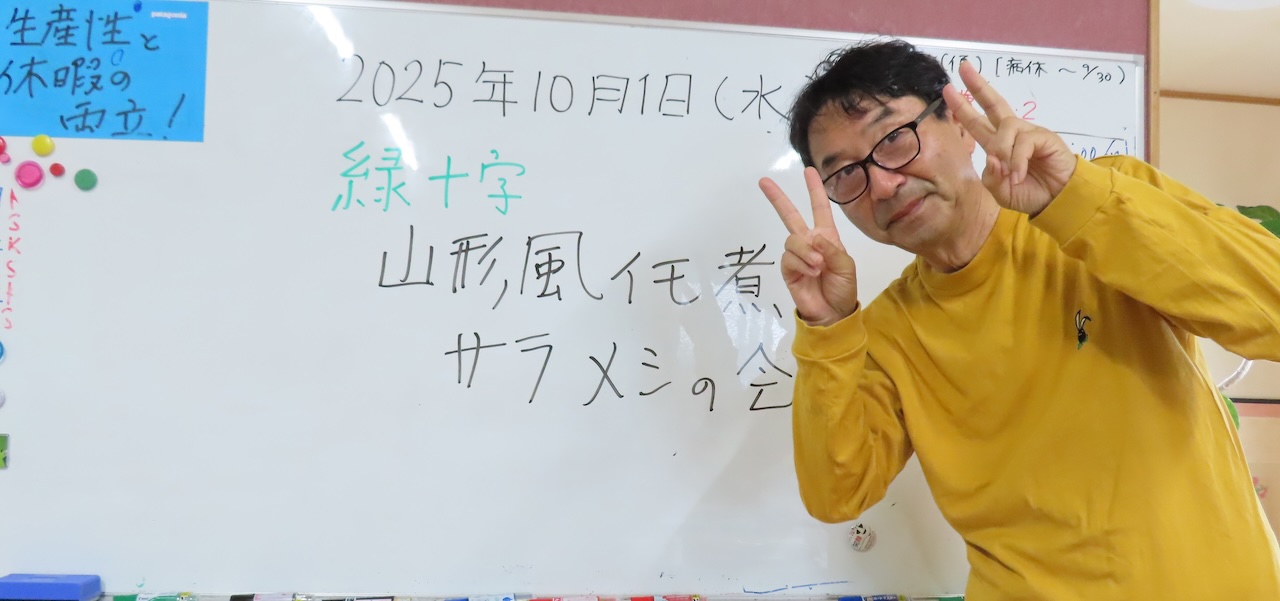 生産性と
休暇の
両立!
2025年10月1日(水
緑十字
山形風佃煮
サラメシの会
[病休 〜9/30)